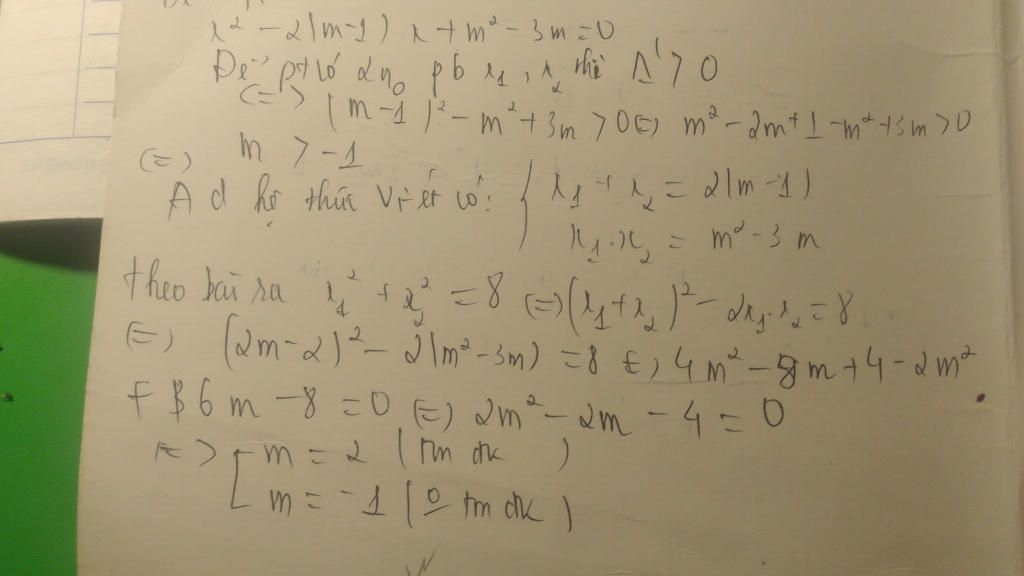 x² - 2(m-1) x + m² - 3m = 0
Để pt có 2n₀ pb x₁, x₂ thì Δ' > 0
<=> (m-1)² - m² + 3m > 0 (=) m² - 2m + 1 - m² + 3m > 0
(=) m > -1
A d hệ thức Vi-ét có: { x₁ + x₂ = 2(m-1)
x₁.x₂ = m² - 3m
theo bài ra x₁² + x₂² = 8 (=) (x₁+x₂)² - 2x₁.x₂ = 8
(=) (2m-2)² - 2(m² - 3m) = 8 (=) 4m² - 8m + 4 - 2m²
+ 6m - 8 = 0 (=) 2m² - 2m - 4 = 0
=> [ m = 2 (tm đk)
m = -1 (o tm đk)